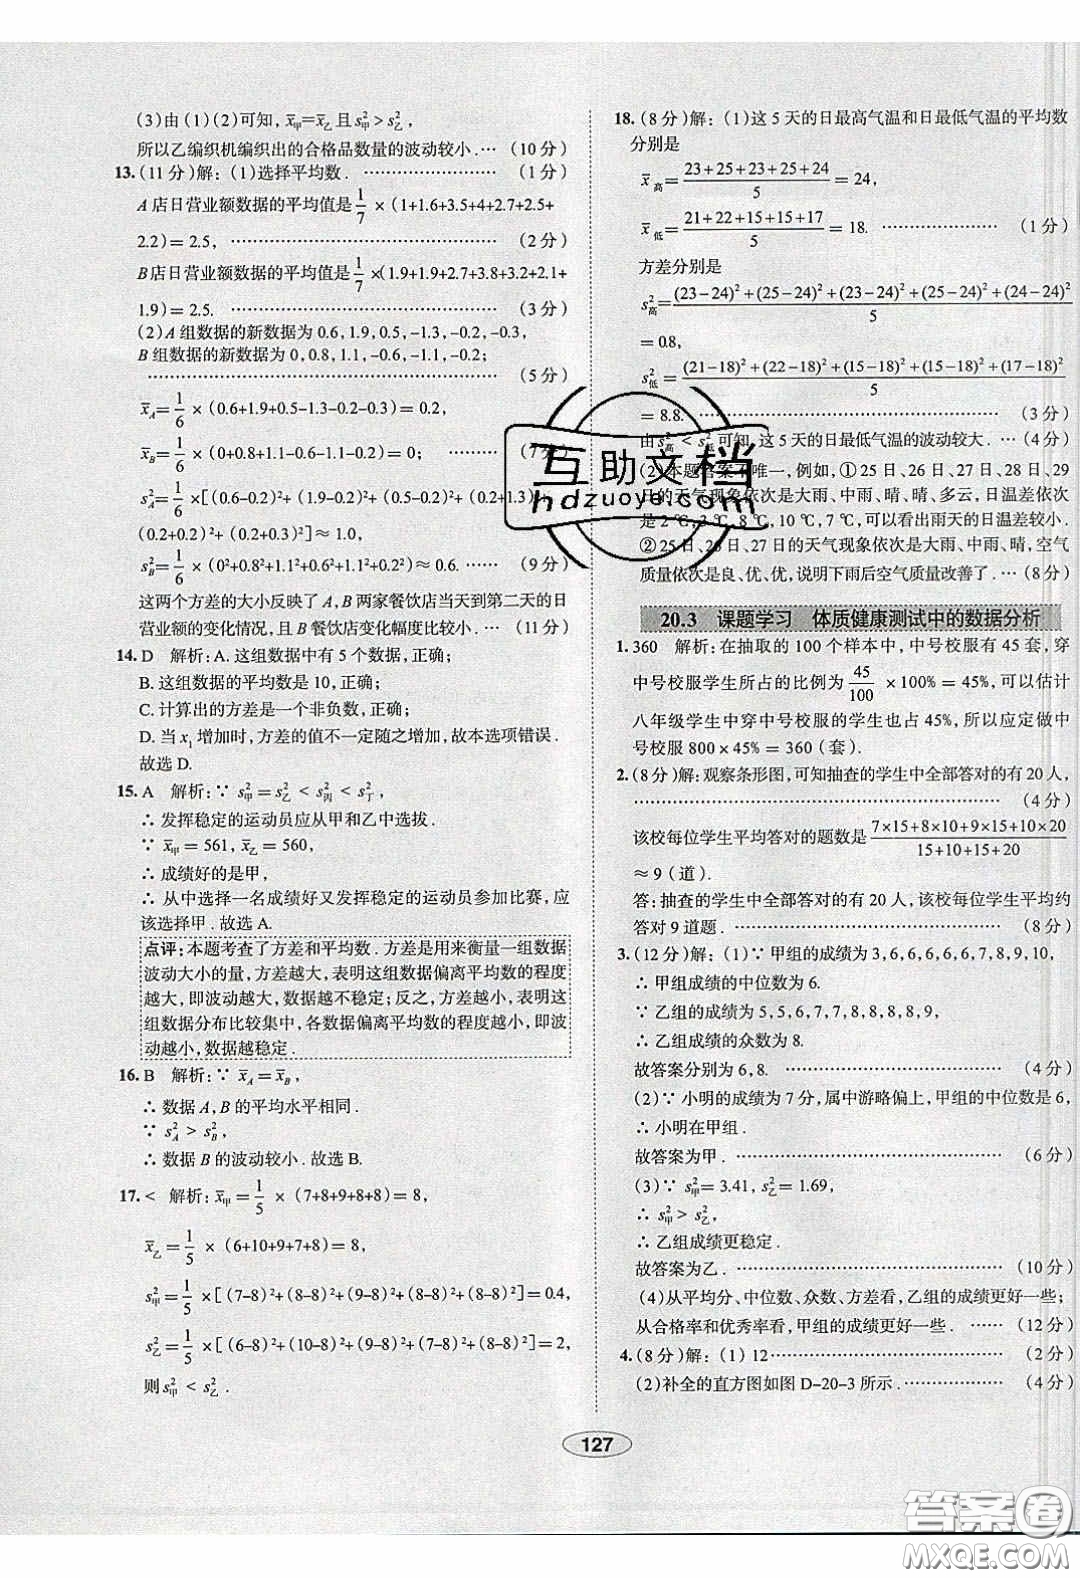 (3)由(1)(2)可知, x̄甲=x̄乙且s²甲>s²乙,
所以乙编织机编织出的合格品数量的波动较小.… (10分)
13.(11分)解:(1)选择平均数. ………………… (1分)
A店日营业额数据的平均值是1/7×(1+1.6+3.5+4+2.7+2.5+
2.2)=2.5, ………………………………… (2分)
B店日营业额数据的平均值是1/7×(1.9+1.9+2.7+3.8+3.2+2.1+
1.9)=2.5. ………………………………… (3分)
(2)A组数据的新数据为0.6,1.9,0.5,-1.3,-0.2,-0.3,
B组数据的新数据为0,0.8,1.1,-0.6,-1.1,-0.2;
……………………………………………… (5分)
x̄A=1/6×(0.6+1.9+0.5-1.3-0.2-0.3)=0.2,
x̄B=1/6×(0+0.8+1.1-0.6-1.1-0.2)=0; ……… (7分)
s²A=1/6×[(0.6-0.2)²+(1.9-0.2)²+(0.5-0.2)²+(0.2+1.3)²+
(0.2+0.2)²+(0.2+0.3)²]≈1.0,
s²B=1/6×(0²+0.8²+1.1²+0.6²+1.1²+0.2²)≈0.6. …… (9分)
这两个方差的大小反映了A,B两家餐饮店当天到第二天的日
营业额的变化情况,且B餐饮店变化幅度比较小.… (11分)
14.D 解析:A.这组数据中有5个数据,正确;
B.这组数据的平均数是10,正确;
C.计算出的方差是一个非负数,正确;
D.当x₁增加时,方差的值不一定随之增加,故本选项错误.
故选D.
15.A 解析:∵s²甲=s²乙<s²丙<s²丁,
∴发挥稳定的运动员应从甲和乙中选拔.
∵x̄甲=561,x̄乙=560,
∴成绩好的是甲,
∴从中选择一名成绩好又发挥稳定的运动员参加比赛,应
该选择甲.故选A.
点评:本题考查了方差和平均数.方差是用来衡量一组数据
波动大小的量,方差越大,表明这组数据偏离平均数的程度
越大,即波动越大,数据越不稳定;反之,方差越小,表明这
组数据分布比较集中,各数据偏离平均数的程度越小,即波
动越小,数据越稳定.
16.B 解析:∵x̄A=x̄B,
∴数据A,B的平均水平相同.
∵s²A>s²B,
∴数据B的波动较小.故选B.
17.< 解析:x̄甲=1/5×(7+8+9+8+8)=8,
x̄乙=1/5×(6+10+9+7+8)=8,
s²甲=1/5×[(7-8)²+(8-8)²+(9-8)²+(8-8)²+(8-8)²]=0.4,
s²乙=1/5×[(6-8)²+(10-8)²+(9-8)²+(7-8)²+(8-8)²]=2,
则s²甲<s²乙.
18.(8分)解:(1)这5天的日最高气温和日最低气温的平均数
分别是
x̄高=(23+25+23+25+24)/5=24,
x̄低=(21+22+15+15+17)/5=18. ………………… (1分)
方差分别是
s²高=((23-24)²+(25-24)²+(23-24)²+(25-24)²+(24-24)²)/5
=0.8,
s²低=((21-18)²+(22-18)²+(15-18)²+(15-18)²+(17-18)²)/5
=8.8. ……………………………………… (3分)
由s²高<s²低可知,这5天的日最低气温的波动较大.… (4分)
(2)本题答案不唯一,例如,①25日、26日、27日、28日、29
日的天气现象依次是大雨、中雨、晴、晴、多云,日温差依次
是2℃,3℃,8℃,10℃,7℃,可以看出雨天的日温差较小.
②25日、26日、27日的天气现象依次是大雨、中雨、晴,空气
质量依次是良、优、优,说明下雨后空气质量改善了.… (8分)
20.3 课题学习 体质健康测试中的数据分析
1.360 解析:在抽取的100个样本中,中号校服有45套,穿
中号校服学生所占的比例为45/100×100%=45%,可以估计
八年级学生中穿中号校服的学生也占45%,所以应定做中
号校服800×45%=360(套).
2.(8分)解:观察条形图,可知抽查的学生中全部答对的有20人,
……………………………………………… (4分)
该校每位学生平均答对的题数是(7×15+8×10+9×15+10×20)/(15+10+15+20)
≈9(道).
答:抽查的学生中全部答对的有20人,该校每位学生平均约
答对9道题. ……………………………………… (8分)
3.(12分)解:(1)∵甲组的成绩为3,6,6,6,6,6,7,8,9,10,
∴甲组成绩的中位数为6.
∵乙组的成绩为5,5,6,7,7,8,8,8,8,9,
∴乙组成绩的众数为8.
故答案分别为6,8. ……………………………… (4分)
(2)∵小明的成绩为7分,属中游略偏上,甲组的中位数是6,
∴小明在甲组.
故答案为甲. ……………………………………… (6分)
(3)∵s²甲=3.41,s²乙=1.69,
∴s²甲>s²乙,
∴乙组成绩更稳定.
故答案为乙. ……………………………………… (10分)
(4)从平均分、中位数、众数、方差看,乙组的成绩更好一些;
从合格率和优秀率看,甲组的成绩更好一些. …… (12分)
4.(8分)解:(1)12 ……………………………… (2分)
(2)补全的直方图如图D-20-3所示. …………… (4分)
127
互助文档
hdzuoye.com
答案圈
MXQE.COM